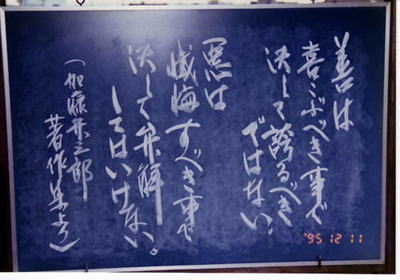 善は
喜こぶべき事で
決して誇るべき
ではない。
悪は
懺悔すべき事で
決して弁解
してはいけない。
(加藤弁三郎
著作集より)
'95 12 11